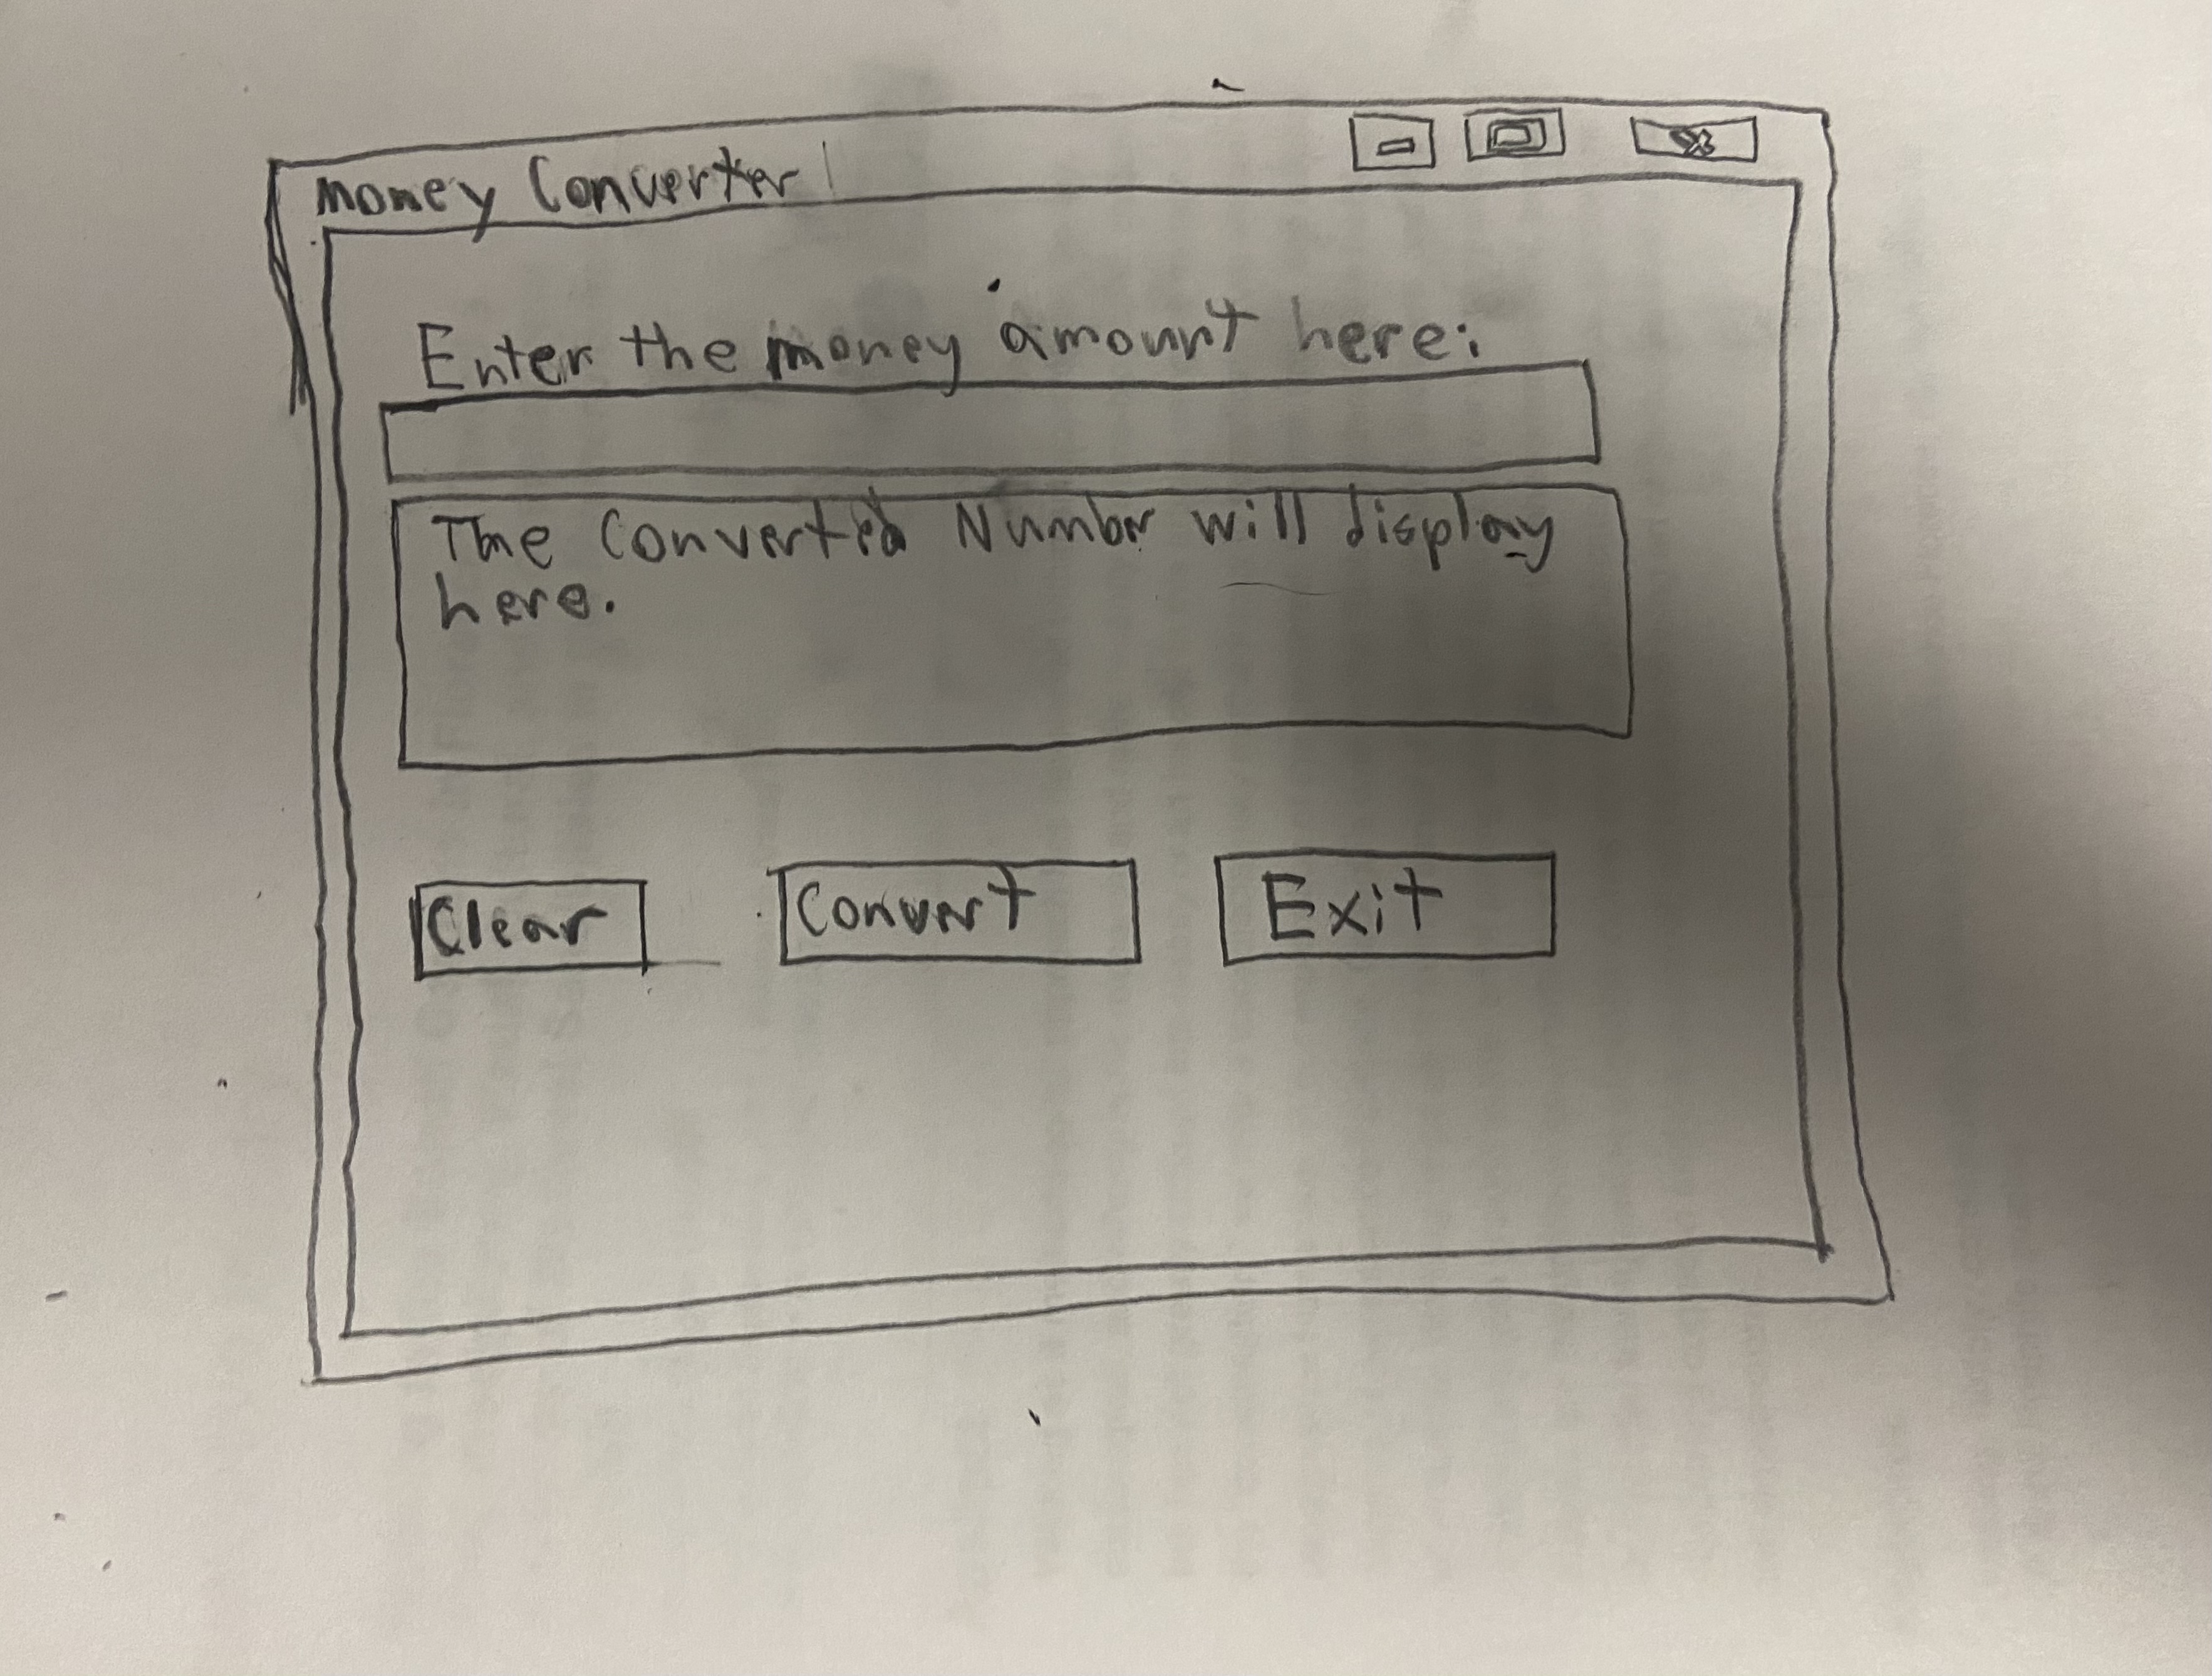 Money Converter
Enter the money amount here:
The Converted Number will display
here.
Clear
Convert
Exit